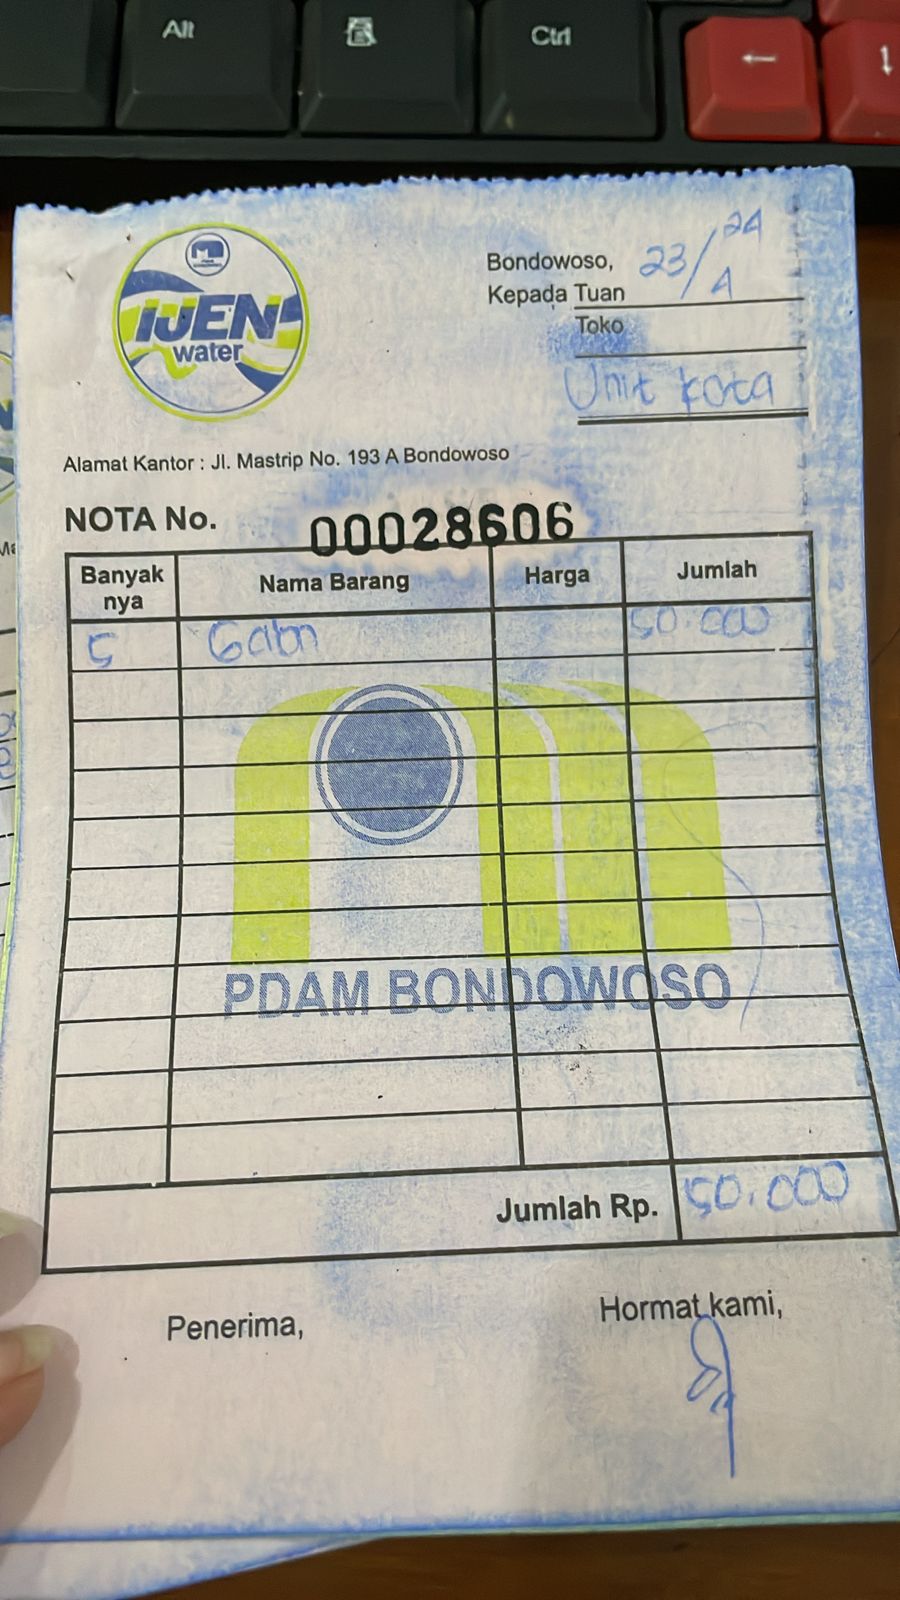 Alt
Ctrl
←
IJEN
water
Bondowoso, 23/4 24
Kepada Tuan
Toko
Unit Kota
Alamat Kantor : Jl. Mastrip No. 193 A Bondowoso
NOTA No. 00028606
Banyak nya Nama Barang Harga Jumlah
5 Galon 50.000
PDAM BONDOWOSO
Jumlah Rp. 50.000
Penerima, Hormat kami,